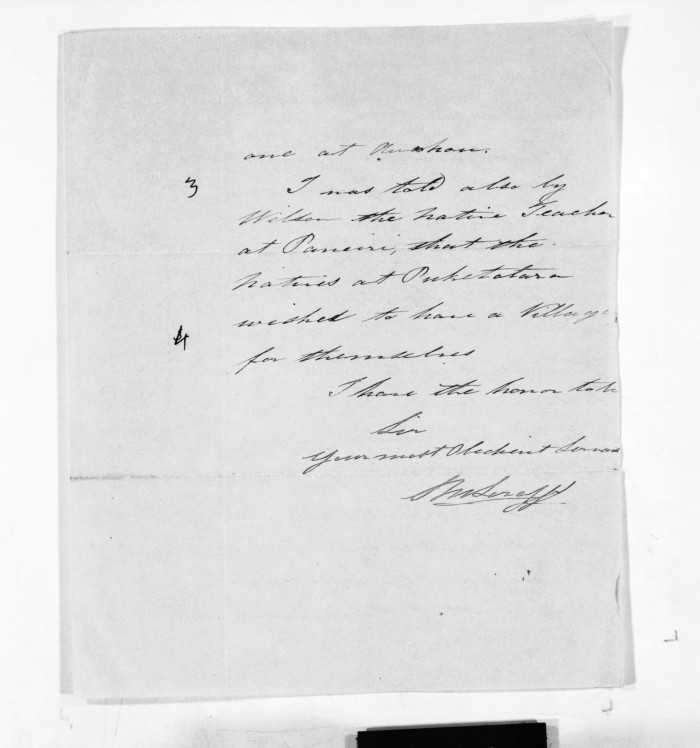 one at
3
I was told also by
Wilson the Native Teacher
at Paneiri, that the
Natives at Puketotara
wished to have a Village
4
for themselves
I have the honor to be
Sir
Your most Obedient Servant